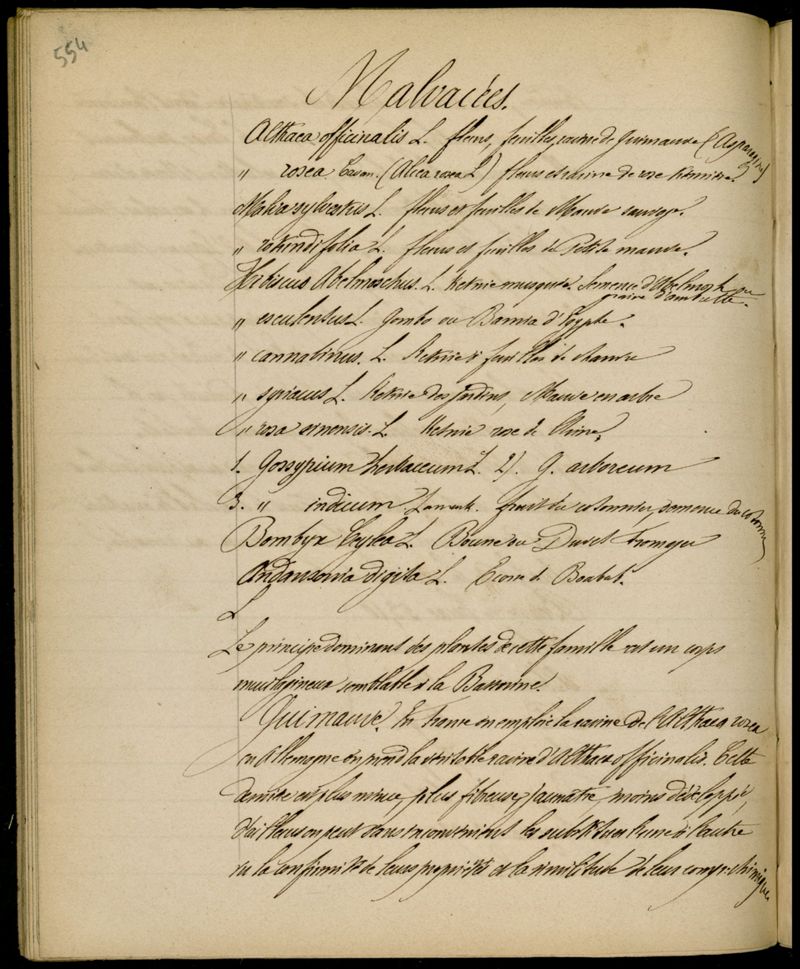 554
Malvacées.
Althaea officinalis L. fleurs, feuilles, racine de Guimauve (Asparagine)
" rosea Cavan. (Alcea rosea L) fleurs et racine de rose trémière.
Malva sylvestris L. fleurs et feuilles de Mauve sauvage.
" rotundifolia L. fleurs et feuilles de Petite mauve.
Hibiscus Abelmoschus. L. Ketmie musquée. Semence d'Abelmosch ou
graine d'ambrette.
" esculentus L. Gombo ou Bamia d'Egypte.
" cannabinus. L. Ketmie à feuilles de chanvre
" syriacus L. Ketmie des Jardins, Mauve en arbre
" rosa sinensis. L. Ketmie rose de Chine.
1. Gossypium herbaceum L. 2). G. arboreum
3. " indicum Lamark. fruit du cotonnier, semence du cotonnier
Bombyx Ceyba L. Bourre ou Duvet Fromager
Andansonia digita L. Ecorce de Boabab.
L
Le principe dominant des plantes de cette famille est un corps
mucilagineux semblable à la Bassorine.
Guimauve. En France on emploie la racine de l'Althaea rosea
en Allemagne on prend la véritable racine d'Althaea officinalis. Cette
dernière est plus mince, plus fibreuse, jaunatre, moins développé,
d'ailleurs on peut sans inconvénient les substituer l'une à l'autre
vu la conformité de leurs propriétés et la similitude de leur comp. chimique